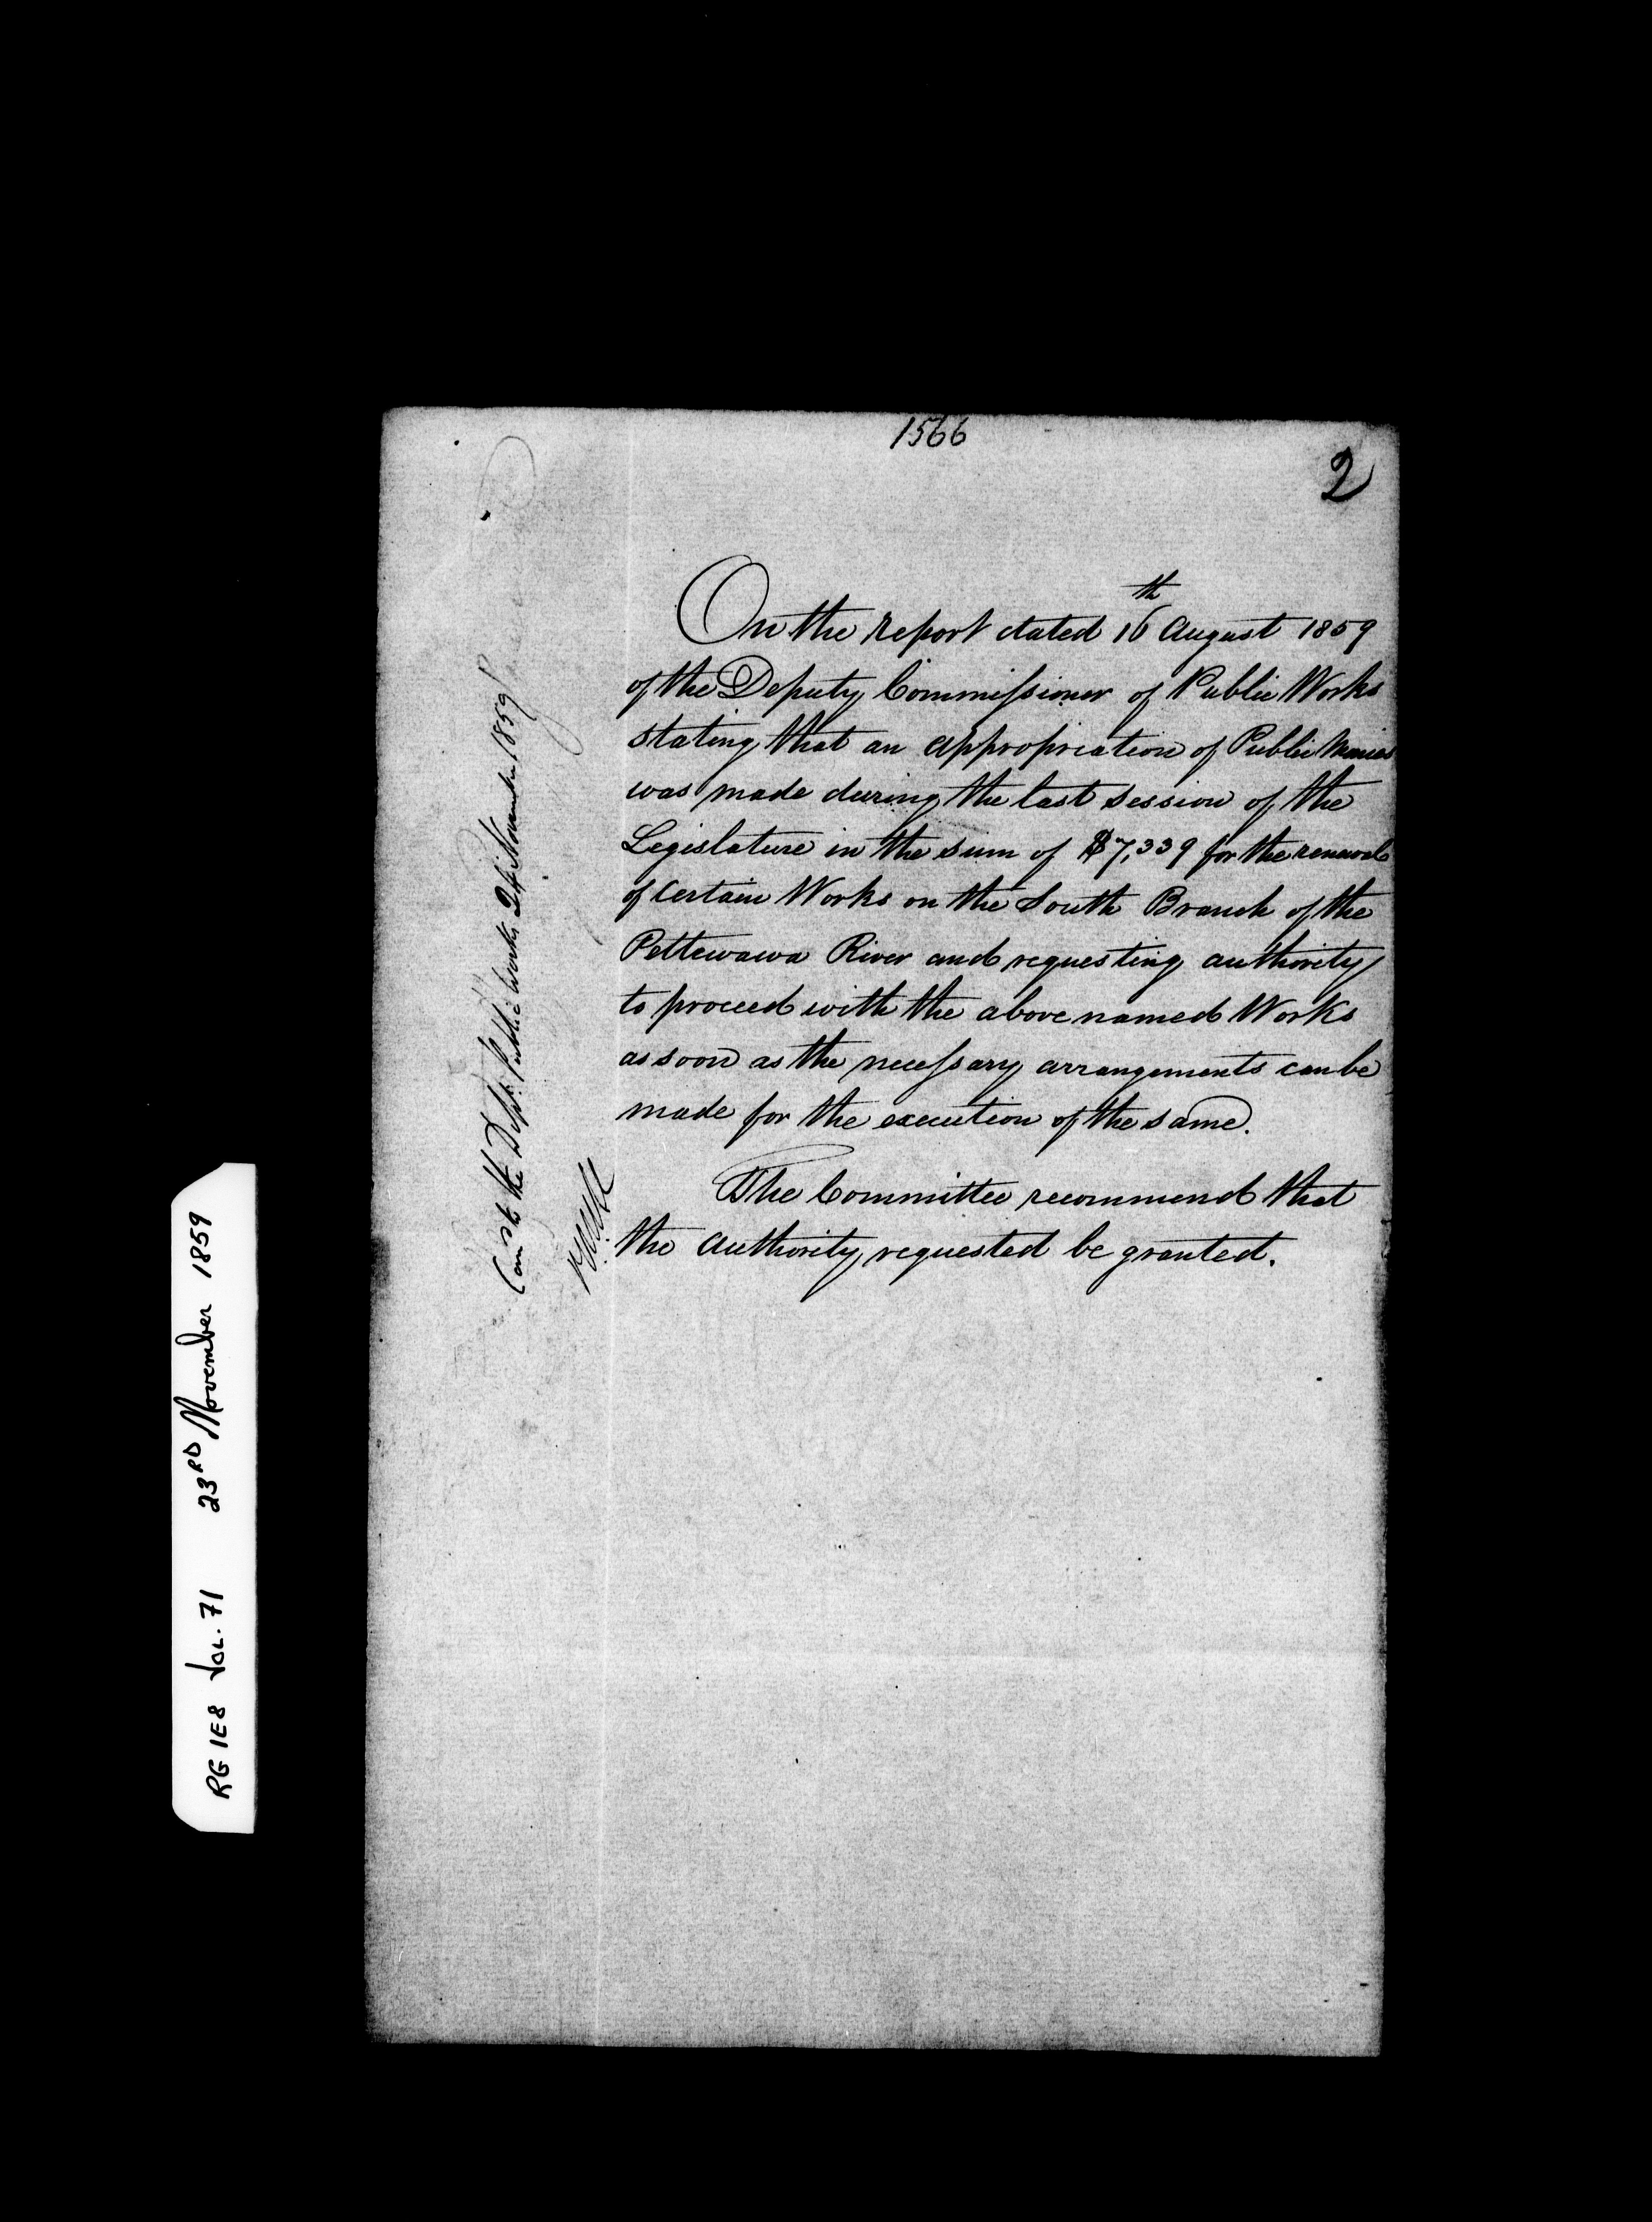 1566
2
On the report dated 16th August 1859
of the Deputy Commissioner of Public Works
stating that an appropriation of Public Monies
was made during the last session of the
Legislature in the sum of $7,339 for the renewal
of certain Works on the South Branch of the
Pettewawa River and requesting authority
to proceed with the above named Works
as soon as the necessary arrangements can be
made for the execution of the same.
The Committee recommend that
the authority requested be granted.
to the Dept. Public Works November 1859
RG 1E8 Vol. 71 23RD November 1859